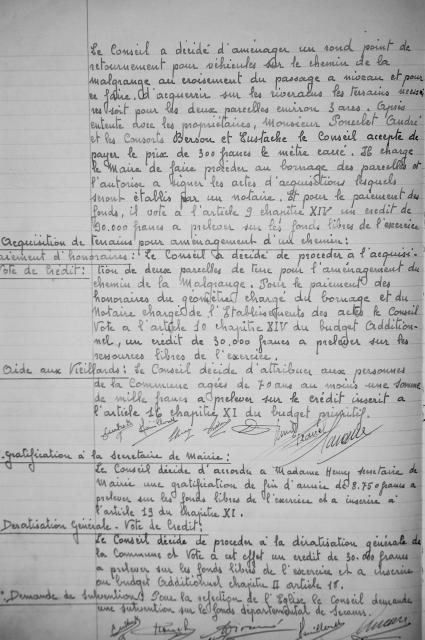 Le Conseil a décidé d'aménager un rond point de
retournement pour véhicules sur le chemin de la
malgrange au croisement du passage a niveau et pour
ce faire, d'acquerir sur les riverains les terrains neces
res soit pour les deux parcelles environ 3 ares. Après
entente avec les propriétaires, Monsieur Poncelet André
et les Consorts Berson et Eustache le Conseil accepte de
payer le prix de 300 francs le mètre carré. Il charge
le Maire de faire procéder au bornage des parcelles et
l'autorise a signer les actes d'acquisitions lesquels
seront établis par un notaire. Et pour le paiement des
fonds, il vote a l'article 9 chapitre XIV un credit de
90.000 francs a prelever sur les fonds libres de l'exercice
Acquisition de terrains pour aménagement d'un chemin:
aiement d'honoraires: Le Conseil a décidé de procéder a l'acquisi-
Vote de Crédit: tion de deux parcelles de terre pour l'aménagement du
chemin de la Malgrange. Pour le paiement des
honoraires du géomètre chargé du bornage et du
Notaire chargé de l'Etablissements des actes le Conseil
Vote a l'article 10 chapitre XIV du budget Addition-
nel, un crédit de 30.000 francs a prelever sur les
ressources libres de l'exercice.
Aide aux Vieillards: Le Conseil décide d'attribuer aux personnes
de la Commune agés de 70 ans au moins une somme
de mille francs a prelever sur le crédit inscrit a
l'article 16 chapitre XI du budget primitif.
Gratification à la Secretaire de Mairie:
Le Conseil décide d'accorder a Madame Henry secretaire de
Mairie une gratification de fin d'année de 8.750 francs a
prelever sur les fonds libres de l'exercice et a inscrire a
l'article 19 du Chapitre XI.
Deratisation Générale - Vote de Credit:
Le Conseil décide de procéder a la dératisation générale de
la Commune et Vote à cet effet un credit de 30.000 francs
a prelever sur les fonds libres de l'exercice et a inscrire
au budget Additionnel chapitre II article 18.
Demande de Subvention: Pour la refection de l'Eglise le Conseil demande
une subvention sur le fonds départemental de Secours.